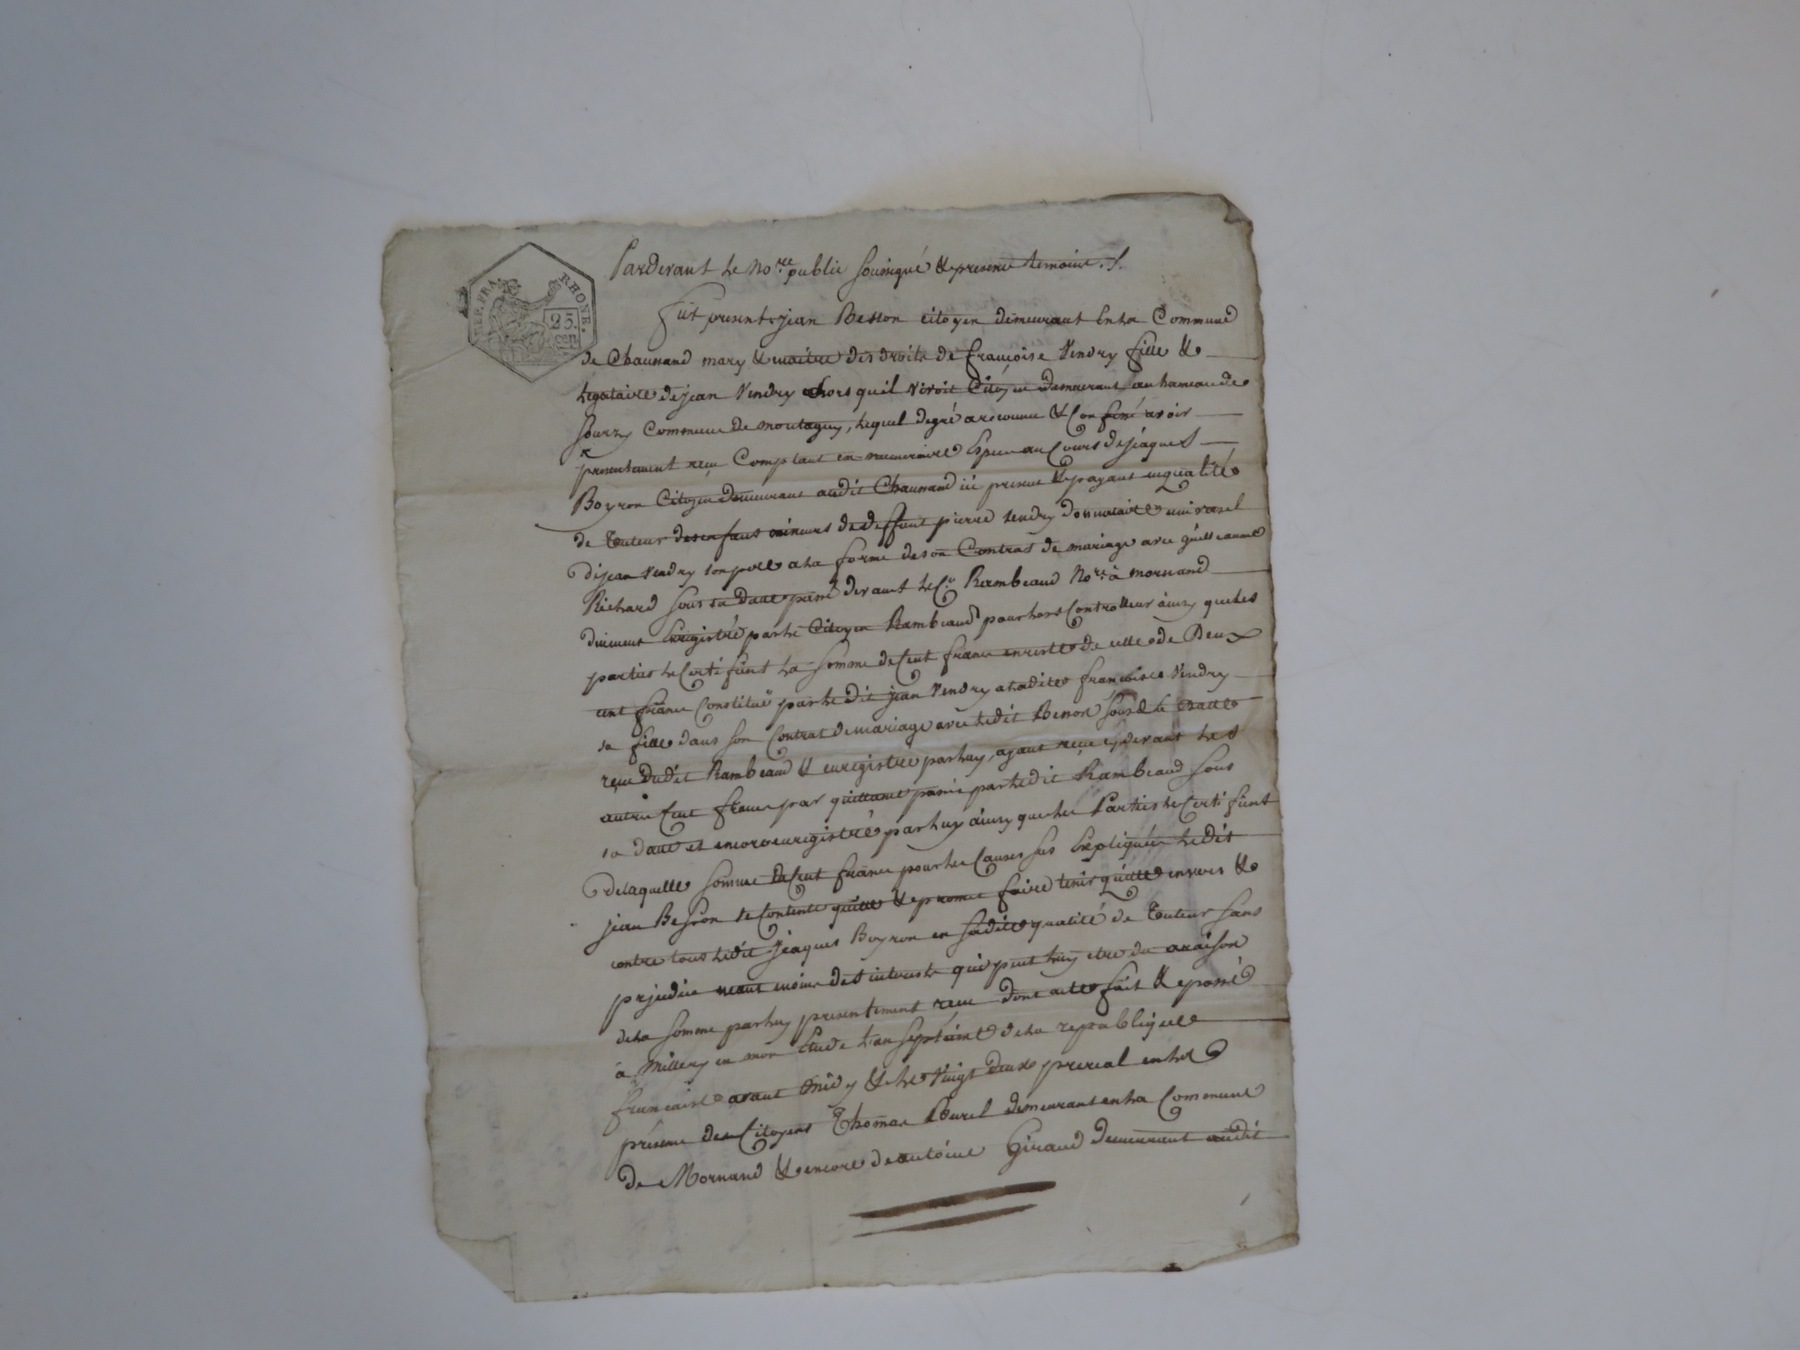 REP. FRA. RHONE.
25. cen
Pardevant le No.re public soussigné & presens temoins.
Fut present jean Besson citoyen demeurant en la Commune
de Chaussand mary & maitre des droits de françoise Vendry fille &
legataire de jean Vendry lhors quil vivoit Citoyen demeurant au hameau de
Sourzy Commune de montagny, lequel de gré a reconnu & Confessé avoir
presentement reçu Comptant en numeraire Espece au Cours de jâques
Boyron Citoyen demeurant audit Chaussand ici present & payant en qualité
de Tuteur des enfans mineurs de deffunt pierre Vendry donnataire universel
de jean Vendry son pere a la forme de son Contrat de mariage avec guilleaume
Richard sous sa date passé devant le C.n Rambeaud No.re à mornand
duement enregistré par le Citoyen Rambeaud pour lors Controlleur ainsy que les
parties le Certifient la somme de Cent francs en reste de celle de Deux
cent francs Constitué par le dit jean Vendry a ladite françoise Vendry
sa fille dans son Contrat de mariage avec ledit Besson sous sa date
reçu dudit Rambeaud & enregistré par luy, ayant reçu cydevant les
autres Cent francs par quittance passé par ledit Rambeaud sous
sa date et encore enregistré par luy ainsy que les Parties le Certifient
de laquelle somme de Cent francs pour les Causes sus Expliquées ledit
jean Besson se Contente quitte & promet faire tenir quitte envers &
contre tous ledit jâques Boyron en sadite qualité de Tuteur sans
prejudice neant moins des interets qui peut luy etre du a raison
de la somme par luy presentement reçu dont acte fait & passé
à Millery en mon Etude l'an septième de la republique
francaise avant midy & le vingt deux prereal en la
présence des Citoyens Thomas Burel demeurant en la Commune
de Mornand & encore de antoine Giraud demeurant audit